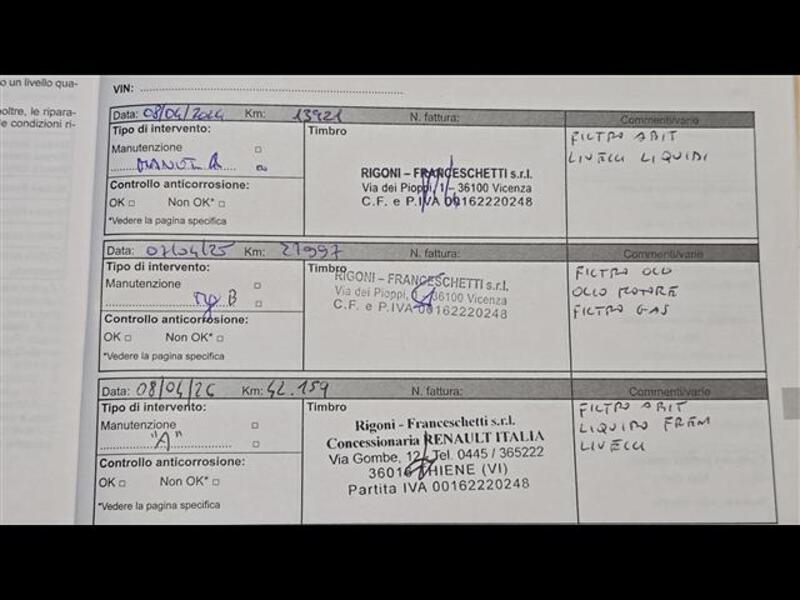 o un livello qua-
noltre, le ripara-
e condizioni ri-
VIN:
Data: 08/04/2024 Km: 13921 N. fattura: Commenti/varie
Tipo di intervento:
Manutenzione
MANUT A
Controllo anticorrosione:
OK Non OK*
*Vedere la pagina specifica
Timbro
RIGONI – FRANCESCHETTI s.r.l.
Via dei Pioppi, 1 – 36100 Vicenza
C.F. e P.IVA 00162220248
FILTRO ABIT
LIVELLI LIQUIDI
Data: 07/04/25 Km: 27997 N. fattura: Commenti/varie
Tipo di intervento:
Manutenzione
B
Controllo anticorrosione:
OK Non OK*
*Vedere la pagina specifica
Timbro
RIGONI – FRANCESCHETTI s.r.l.
Via dei Pioppi, 36100 Vicenza
C.F. e P.IVA 00162220248
FILTRO OLIO
OLIO MOTORE
FILTRO GAS
Data: 08/04/26 Km: 42.159 N. fattura: Commenti/varie
Tipo di intervento:
Manutenzione
"A"
Controllo anticorrosione:
OK Non OK*
*Vedere la pagina specifica
Timbro
Rigoni - Franceschetti s.r.l.
Concessionaria RENAULT ITALIA
Via Gombe, 12 Tel. 0445 / 365222
36016 THIENE (VI)
Partita IVA 00162220248
FILTRO ABIT
LIQUIDO FRENI
LIVELLI